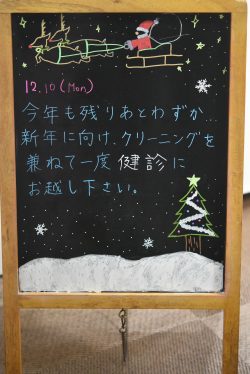 12.10(Mon)
今年も残りあとわずか
新年に向け、クリーニングを
兼ねて一度 健診に
お越し下さい。